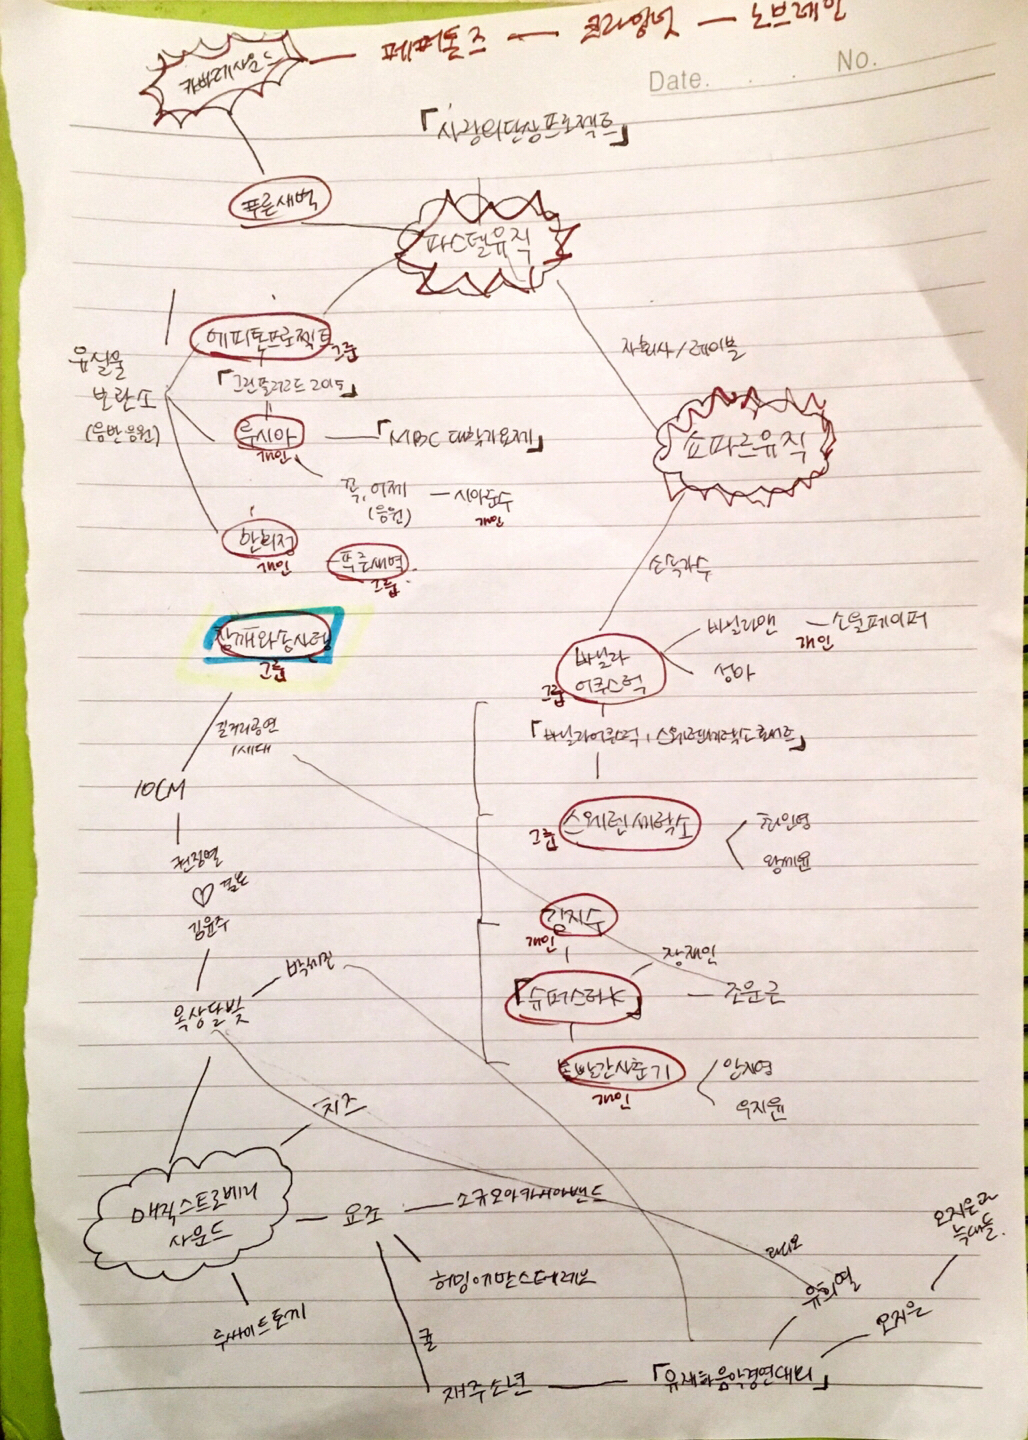 카바레사운드 — 페퍼톤즈 — 크라잉넛 — 노브레인
Date. . . No.
「사랑의단상프로젝트」
푸른새벽
파스텔뮤직
에피톤프로젝트
그룹
자회사/레이블
유실물
보관소
(음반 응원)
「그린플러그드 2015」
쇼파르뮤직
루시아
개인
「MBC 대학가요제」
꼭, 어제
(응원)
— 시아준수
개인
한희정
개인
푸른새벽
그룹
소속가수
참깨와솜사탕
그룹
바닐라맨 — 소울페이퍼
개인
성아
바닐라
어쿠스틱
그룹
길거리공연
1세대
「바닐라어쿠스틱, 스웨덴세탁소 콘서트」
10CM
스웨덴세탁소
그룹
최인영
왕세윤
권정열
♡ 결혼
김윤주
김지수
개인
장재인
박세진
「슈퍼스타K」
— 조문근
옥상달빛
볼빨간사춘기
개인
안지영
우지윤
치즈
매직스트로베리
사운드
— 요조 — 소규모아카시아밴드
오지은과
늑대들.
허밍어반스테레오
라디오
유희열
오지은
루싸이트토끼
귤
재주소년 — 「유재하음악경연대회」